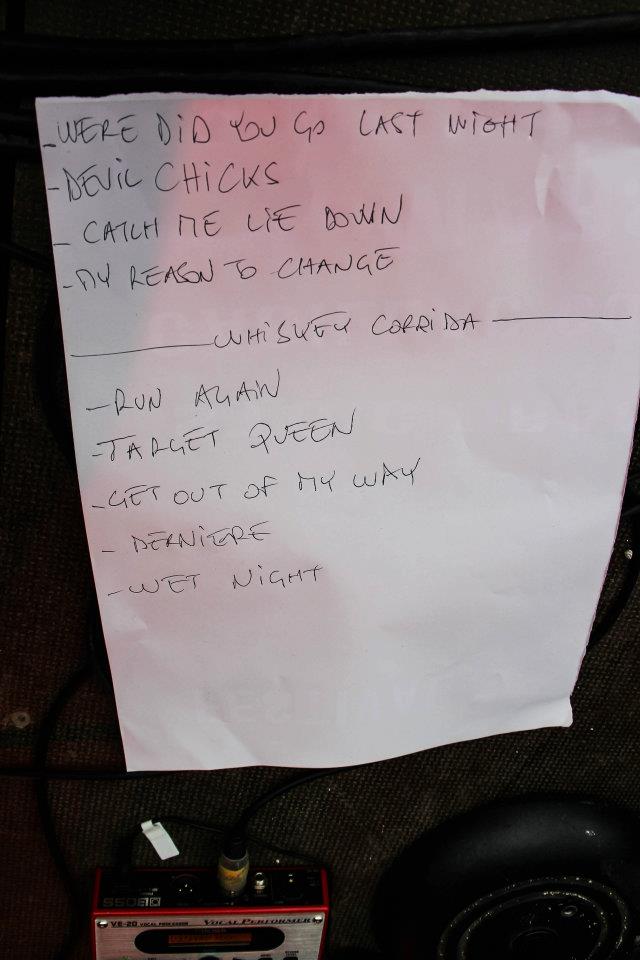 -WERE DiD YOU GO LAST NIGHT
-DEVIL CHiCKS
- CATCH ME LIE DOWN
-MY REASON TO CHANGE
WHiSKEY CORRiDA
-RUN AGAIN
-TARGET QUEEN
-GET OUT OF MY WAY
- DERNIERE
-WET NiGHT
BOSS
VE-20 VOCAL PROCESSOR VOCAL PERFORMER